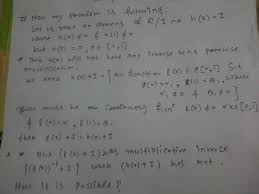 # Now my problem is following.
Let us take an element of R/I → h(x) + I
where h(0) ≠ 0 & h(1) ≠ 0
but h(x) = 0, x ∈ [0,1]
* This h(x) will not have any inverse wrt pointwise
multiplication.
we need h(x) + I = { an function f(x) ∈ [0,1] S.t
f(0) = α, f(1) = β, where
α, ≠ 0 & β, ≠ 0 }
there must be one continuous funcⁿ f(x) ≠ 0 ∀ x ∈ [0,1]
then f(x) + I = h(x) + I
* * But (f(x) + I) has multiplicative inverse
{(f(x))⁻¹ + I} when (h(x) + I) has not.
How it is possible?